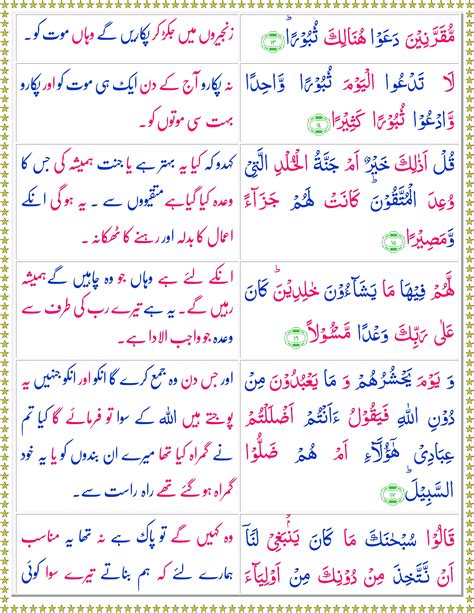 مُّقَرَّنِيْنَ دَعَوْا هُنَالِكَ ثُبُوْرًاؕ ﴿١٣﴾
زنجیروں میں جکڑ کر پکاریں گے وہاں موت کو ۔
لَا تَدْعُوا الْيَوْمَ ثُبُوْرًا وَّاحِدًا
وَّادْعُوْا ثُبُوْرًا كَثِيْرًا ﴿١٤﴾
نہ پکارو آج کے دن ایک ہی موت کو اور پکارو
بہت سی موتوں کو ۔
قُلْ اَذٰلِكَ خَيْرٌ اَمْ جَنَّةُ الْخُلْدِ الَّتِىْ
وُعِدَ الْمُتَّقُوْنَؕ كَانَتْ لَهُمْ جَزَآءً
وَّمَصِيْرًا ﴿١٥﴾
کہدو کہ کیا یہ بہتر ہے یا جنت ہمیشہ کی جس کا
وعدہ کیا گیا ہے متقیوں سے ۔ یہ ہو گی انکے
اعمال کا بدلہ اور رہنے کا ٹھکانہ ۔
لَّهُمْ فِيْهَا مَا يَشَآءُوْنَ خٰلِدِيْنَؕ كَانَ
عَلٰى رَبِّكَ وَعْدًا مَّسْـُٔوْلًا ﴿١٦﴾
انکے لئے ہے وہاں جو وہ چاہیں گے ہمیشہ
رہیں گے ۔ یہ ہے تیرے رب کی طرف سے
وعدہ جو واجب الادا ہے ۔
وَ يَوْمَ يَحْشُرُهُمْ وَ مَا يَعْبُدُوْنَ مِنْ
دُوْنِ اللّٰهِ فَيَقُوْلُ ءَاَنْتُمْ اَضْلَلْتُمْ
عِبَادِىْ هٰٓؤُلَآءِ اَمْ هُمْ ضَلُّوا
السَّبِيْلَؕ ﴿١٧﴾
اور جس دن وہ جمع کرے گا انکو اور انکو جنہیں یہ
پوجتے ہیں اللہ کے سوا تو فرمائے گا کیا تم
نے گمراہ کیا تھا میرے ان بندوں کو یا یہ
خود گمراہ ہو گئے تھے راہ راست سے ۔
قَالُوْا سُبْحٰنَكَ مَا كَانَ يَنْۢبَغِىْ لَنَاۤ
اَنْ نَّتَّخِذَ مِنْ دُوْنِكَ مِنْ اَوْلِيَآءَ
وہ کہیں گے تو پاک ہے نہ تھا یہ مناسب
ہمارے لئے کہ ہم بناتے تیرے سوا کوئی